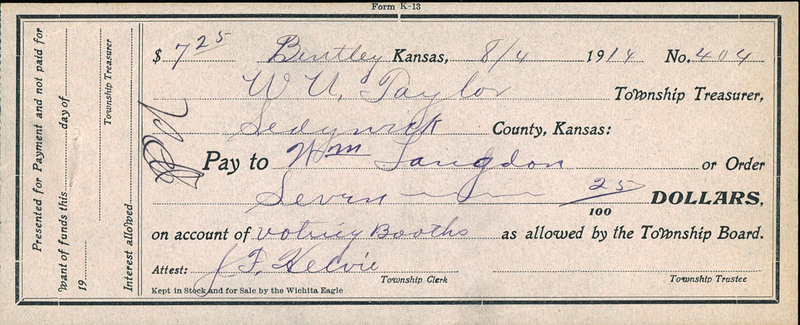 Form K-13
$ 7 25 Bentley Kansas, 8/4 1914 No. 404
W U. Taylor Township Treasurer,
Sedgwick County, Kansas:
Pay to Wm Langdon or Order
Seven 25/100 DOLLARS,
on account of voting Booths as allowed by the Township Board.
Attest: J. F. Helvie
Township Clerk Township Trustee
Kept in Stock and for Sale by the Wichita Eagle
Presented for Payment and not paid for
want of funds this day of
19
Township Treasurer
Interest allowed